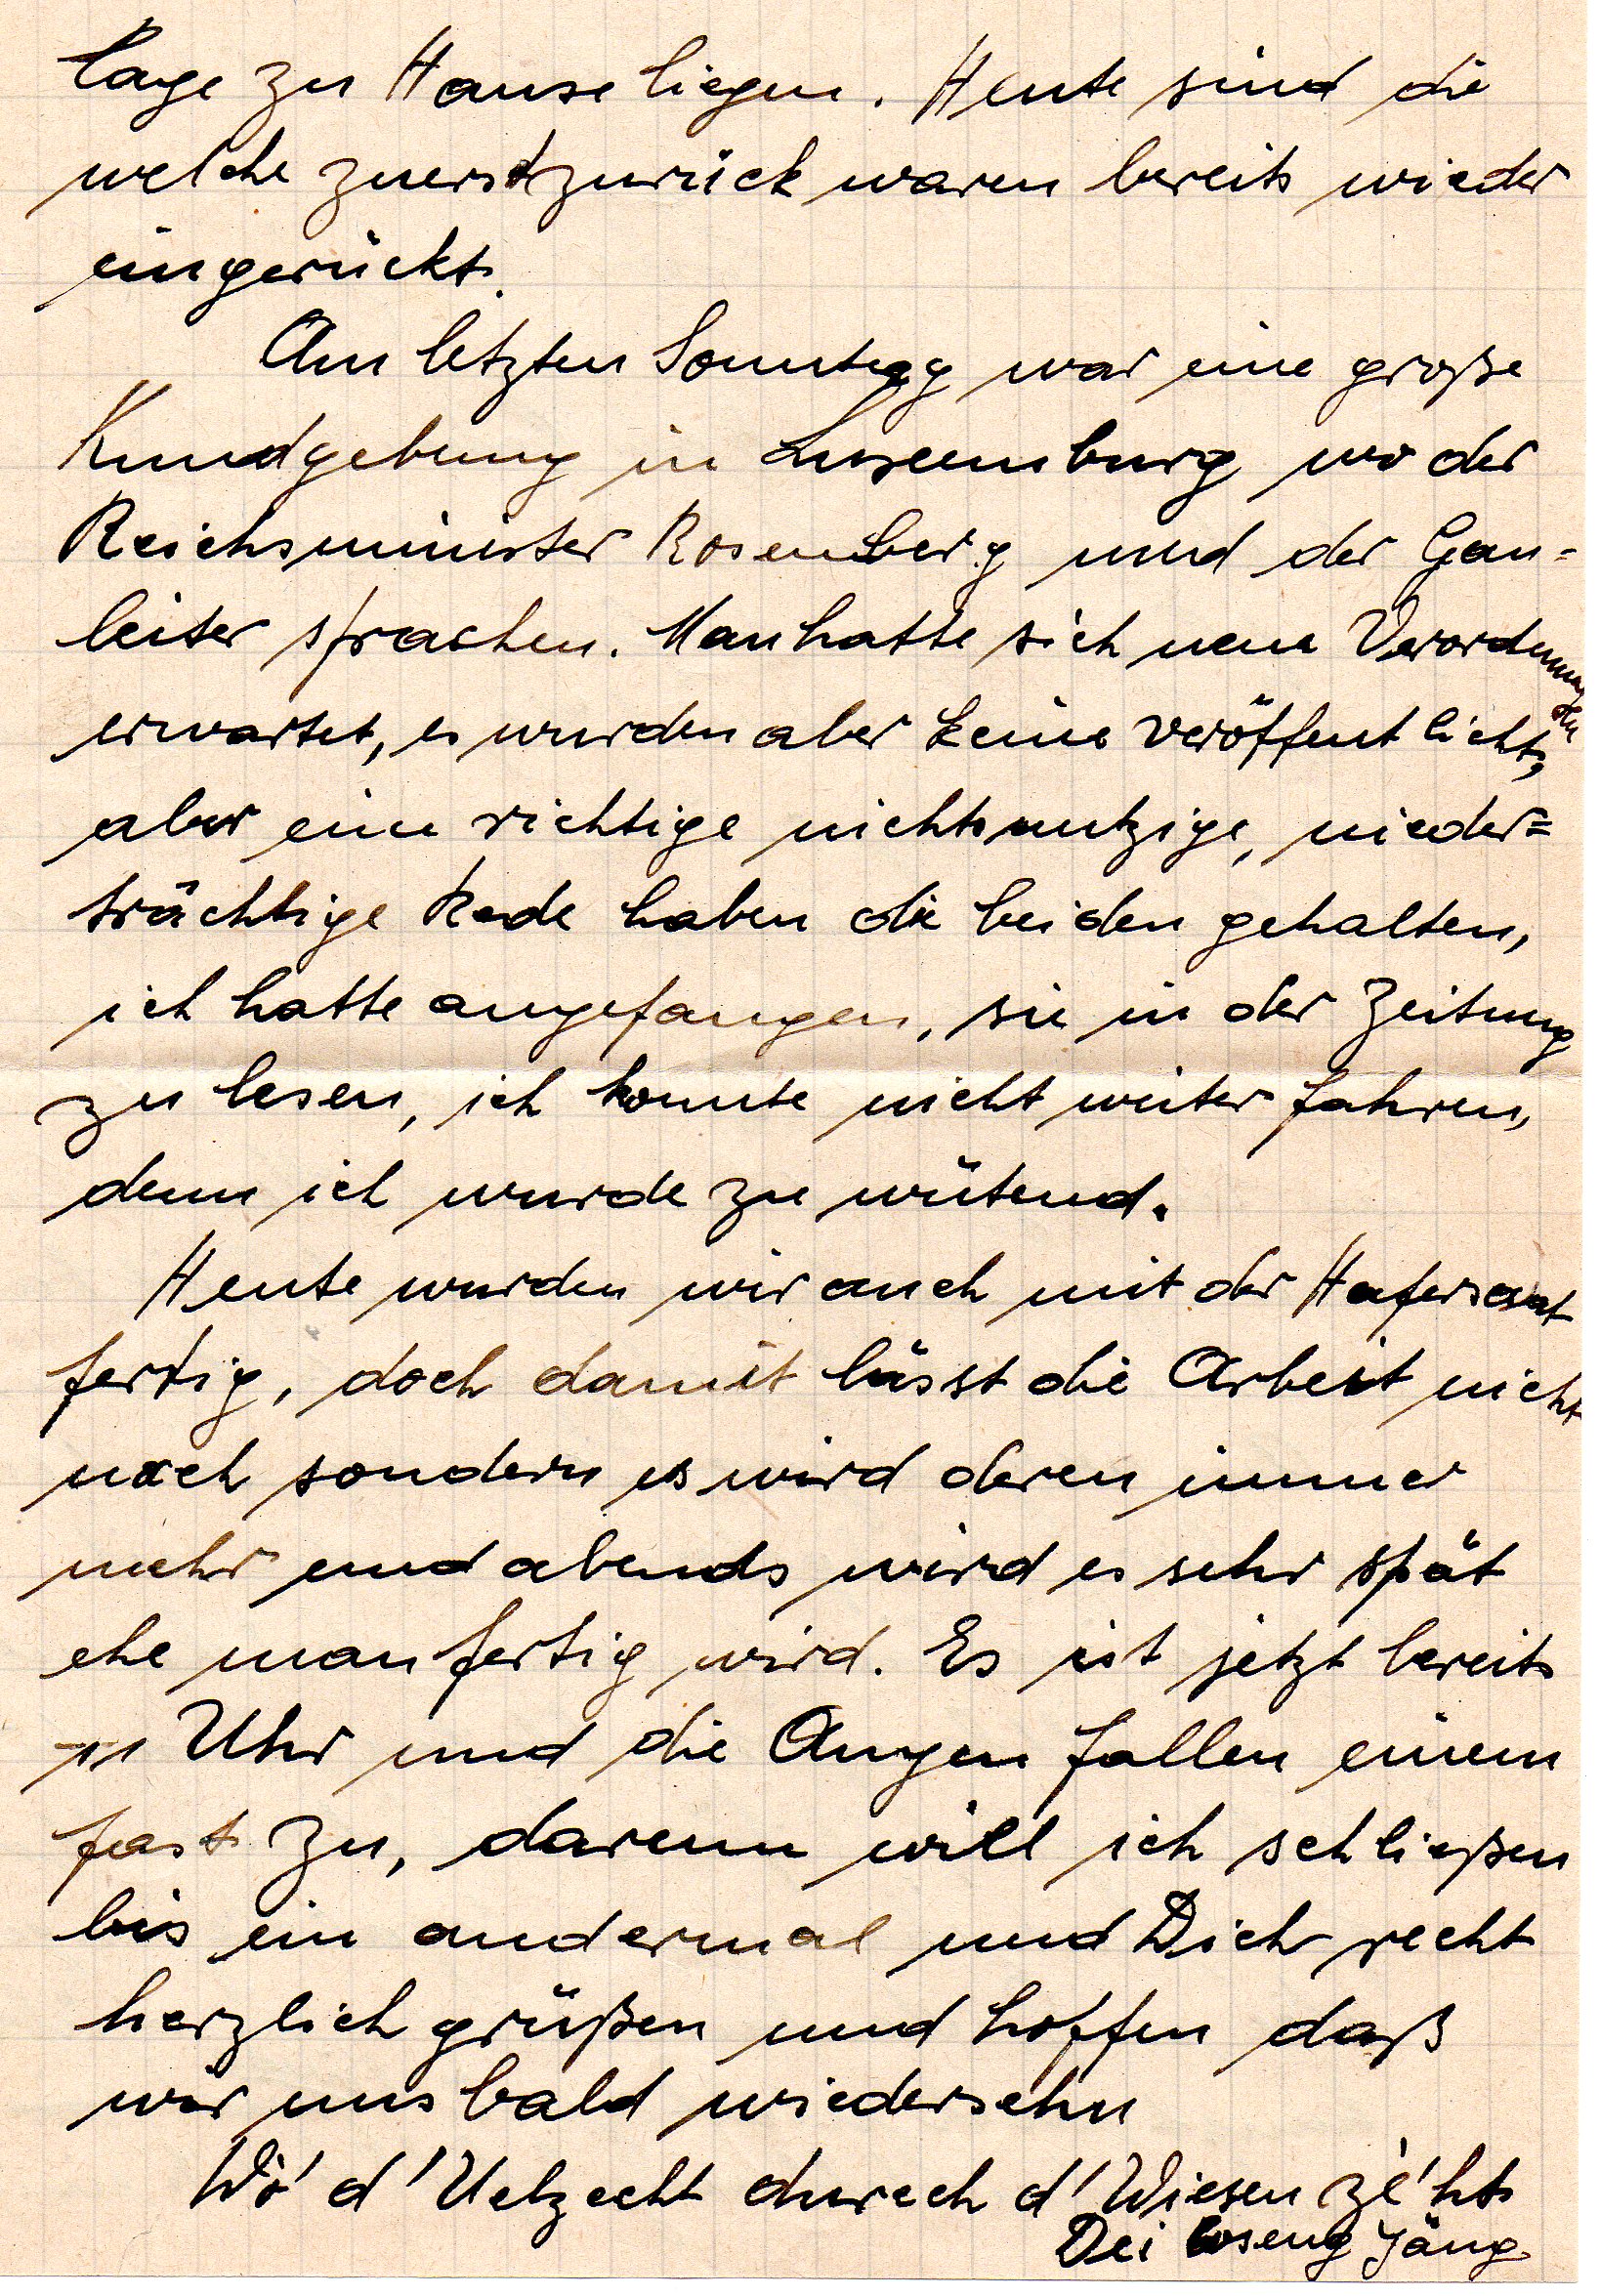 Tage zu Hause liegen. Heute sind die
welche zuerst zurück waren bereits wieder
eingerückt.
Am letzten Sonntag war eine große
Kundgebung in Luxemburg wo der
Reichsminister Rosenberg und der Gau=
leiter sprachen. Man hatte sich neue Verordnungen
erwartet, es wurden aber keine veröffentlicht,
aber eine richtige nichtsnutzige, nieder=
trächtige Rede haben die beiden gehalten,
ich hatte angefangen, sie in der Zeitung
zu lesen, ich konnte nicht weiter fahren,
denn ich wurde zu wütend.
Heute wurden wir auch mit der Hafersaat
fertig, doch damit lässt die Arbeit nicht
nach sondern es wird deren immer
mehr und abends wird es sehr spät
ehe man fertig wird. Es ist jetzt bereits
11 Uhr und die Augen fallen einem
fast zu, darum will ich schließen
bis ein andermal und Dich recht
herzlich grüßen und hoffen daß
wir uns bald wiedersehn
Wó d'Uelzecht durech d'Wiesen zé'ht
Dei Jäng